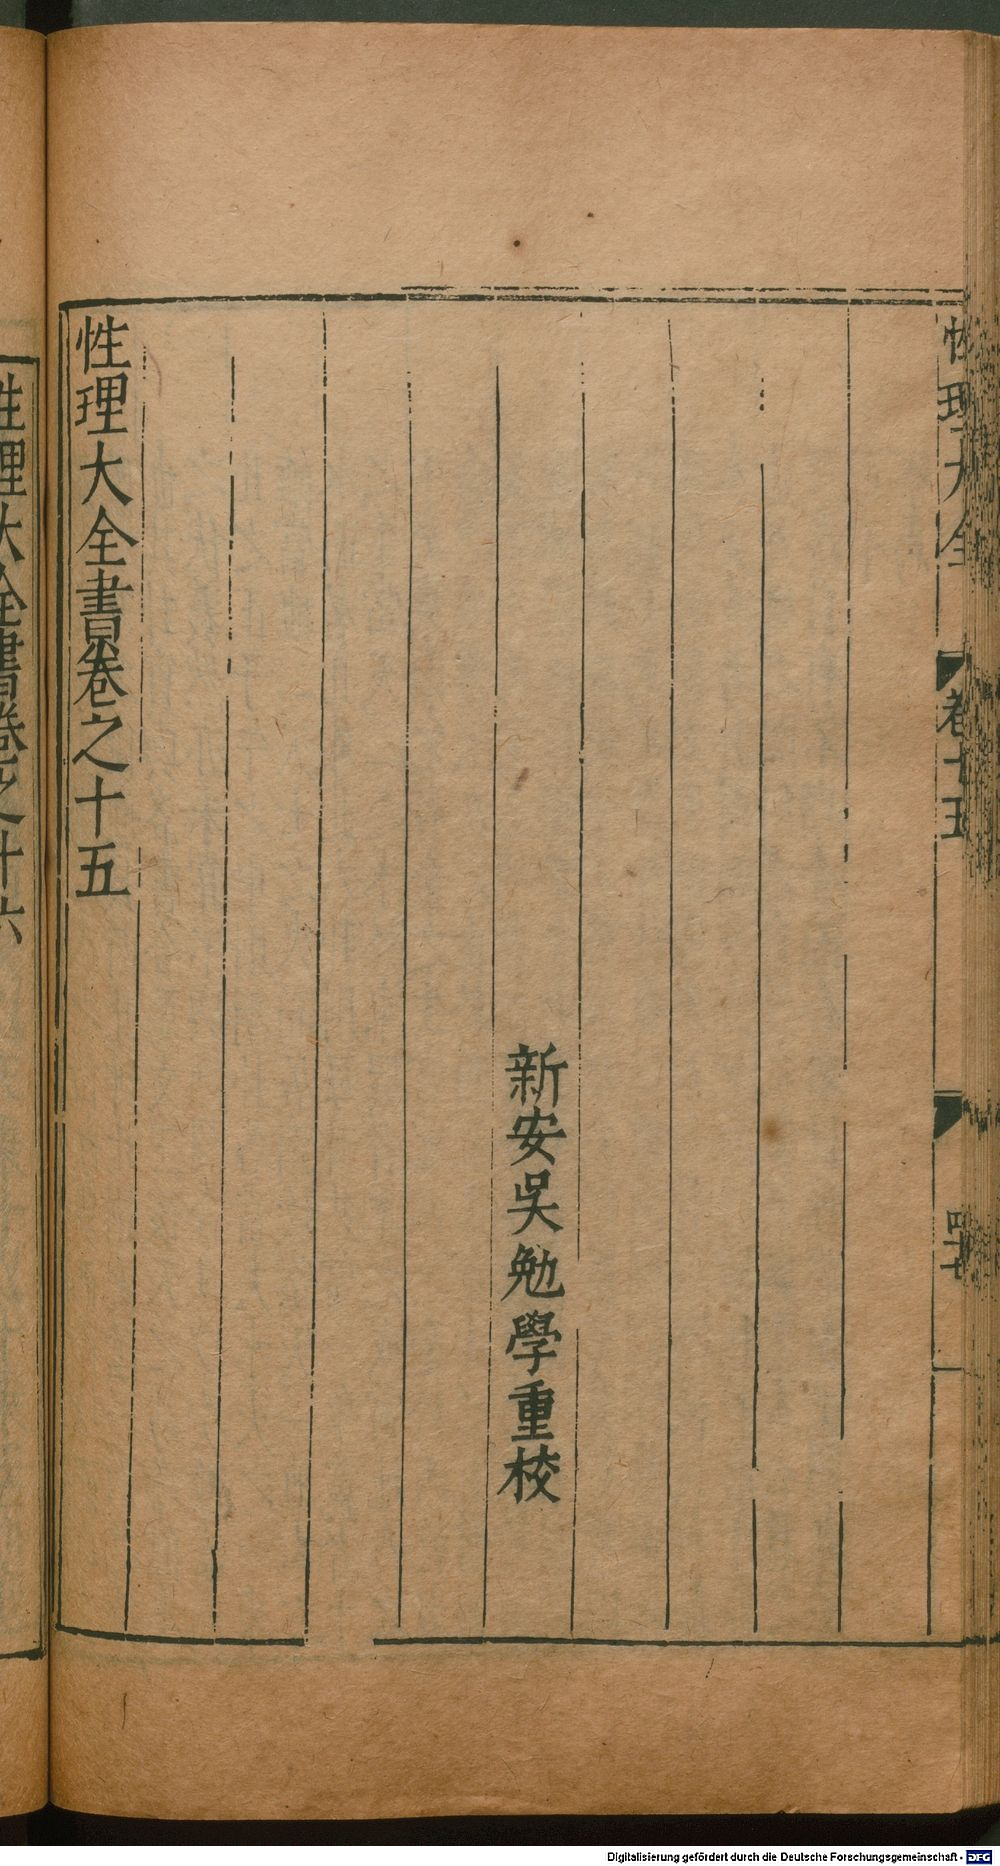 性理大全
卷十五
四十七
新安吳勉學重校
性理大全書卷之十五
性理大全書卷之十六
Digitalisierung gefördert durch die Deutsche Forschungsgemeinschaft - DFG